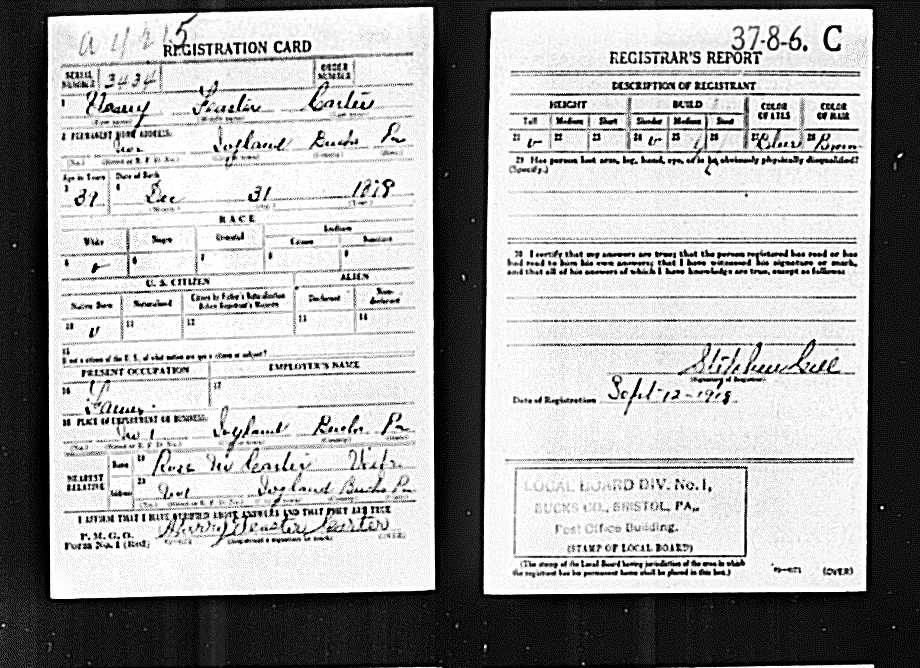 a 1/215
REGISTRATION CARD
SERIAL NUMBER 3434 ORDER NUMBER
1 Harry Feaster Carter
(First name) (Middle name) (Last name)
2 PERMANENT HOME ADDRESS:
No 1 Ivyland Bucks Pa
(No.) (Street or R. F. D. No.) (City or town) (County) (State)
Age in Years Date of Birth
3 39 4 Dec 31 1878
(Month) (Day) (Year)
RACE
White Negro Oriental Indian
Citizen Noncitizen
5 v 6 7 8 9
U. S. CITIZEN ALIEN
Native Born Naturalized Citizen by Father's Naturalization Before Registrant's Majority Declarant Non-declarant
10 v 11 12 13 14
15
If not a citizen of the U. S., of what nation are you a citizen or subject?
PRESENT OCCUPATION EMPLOYER'S NAME
16 Farmer 17
18 PLACE OF EMPLOYMENT OR BUSINESS:
No 1 Ivyland Bucks Pa
(No.) (Street or R. F. D. No.) (City or town) (County) (State)
NEAREST RELATIVE Name 19 Rose M Carter Wife
Address 20 No 1 Ivyland Bucks Pa
(No.) (Street or R. F. D. No.) (City or town) (County) (State)
I AFFIRM THAT I HAVE VERIFIED ABOVE ANSWERS AND THAT THEY ARE TRUE
P. M. G. O.
Form No. 1 (Red) Harry Feaster Carter
(Registrant's signature or mark) (OVER)
37-8-6. C
REGISTRAR'S REPORT
DESCRIPTION OF REGISTRANT
HEIGHT BUILD COLOR OF EYES COLOR OF HAIR
Tall Medium Short Slender Medium Stout
21 v 22 23 24 v 25 26 27 Blue 28 Brown
29 Has person lost arm, leg, hand, eye, or is he obviously physically disqualified?
(Specify.)
30 I certify that my answers are true; that the person registered has read or has
had read to him his own answers; that I have witnessed his signature or mark,
and that all of his answers of which I have knowledge are true, except as follows:
(Signature of Registrar)
Date of Registration Sept-12-1918
LOCAL BOARD DIV. No. 1,
BUCKS CO., BRISTOL, PA.,
Post Office Building.
(STAMP OF LOCAL BOARD)
(The stamp of the Local Board having jurisdiction of the area in which
the registrant has his permanent home shall be placed in this box.)
(OVER)